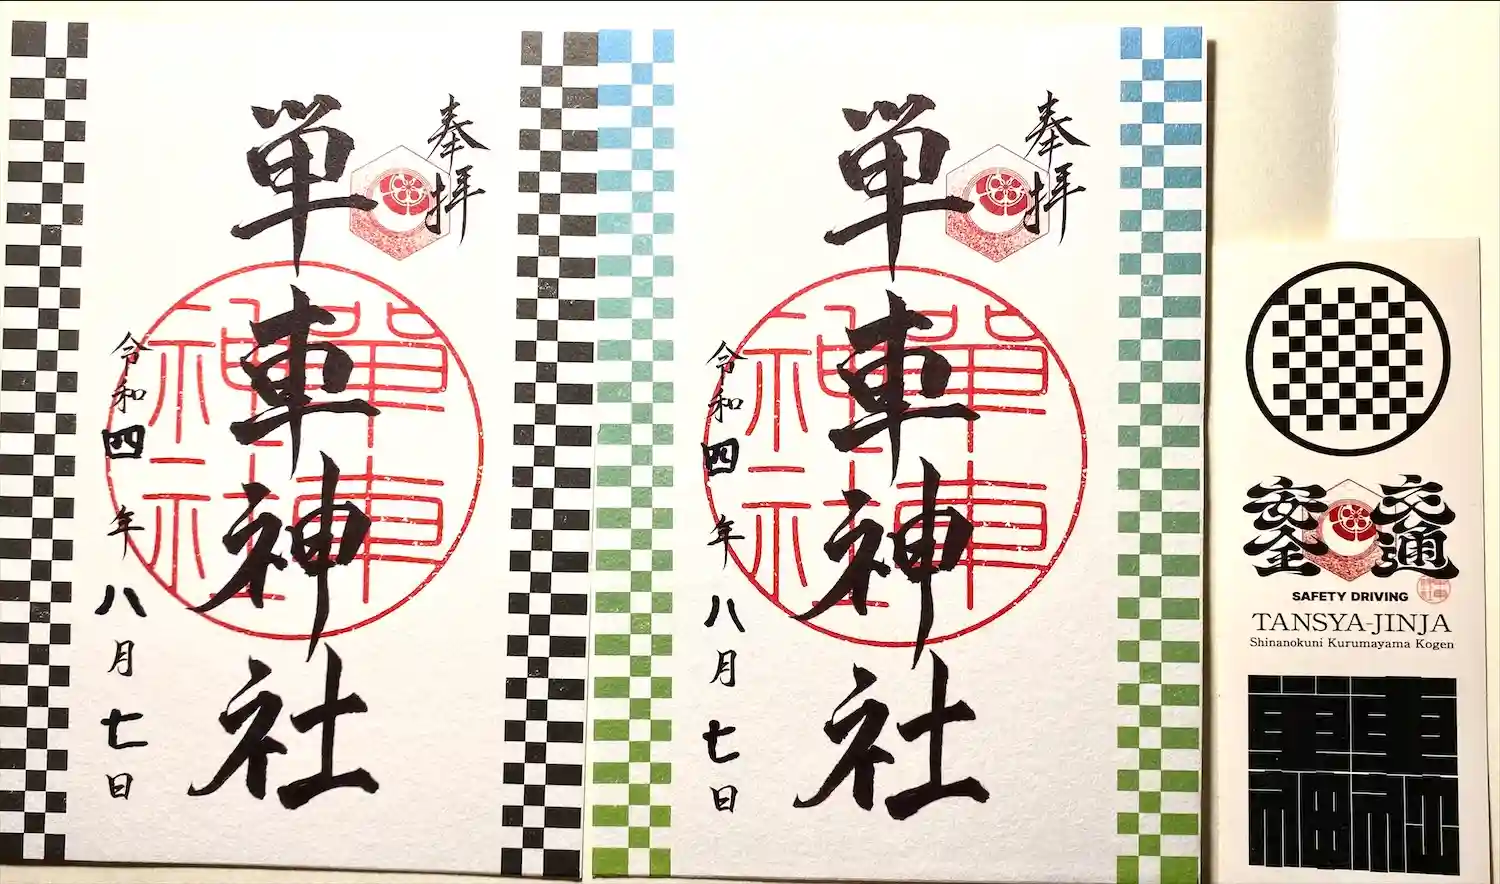 奉拝
単車神社
令和四年八月七日
單車神社
奉拝
単車神社
令和四年八月七日
單車神社
交通
安全
SAFETY DRIVING
TANSYA-JINJA
Shinanokuni Kurumayama Kogen
單車
神社